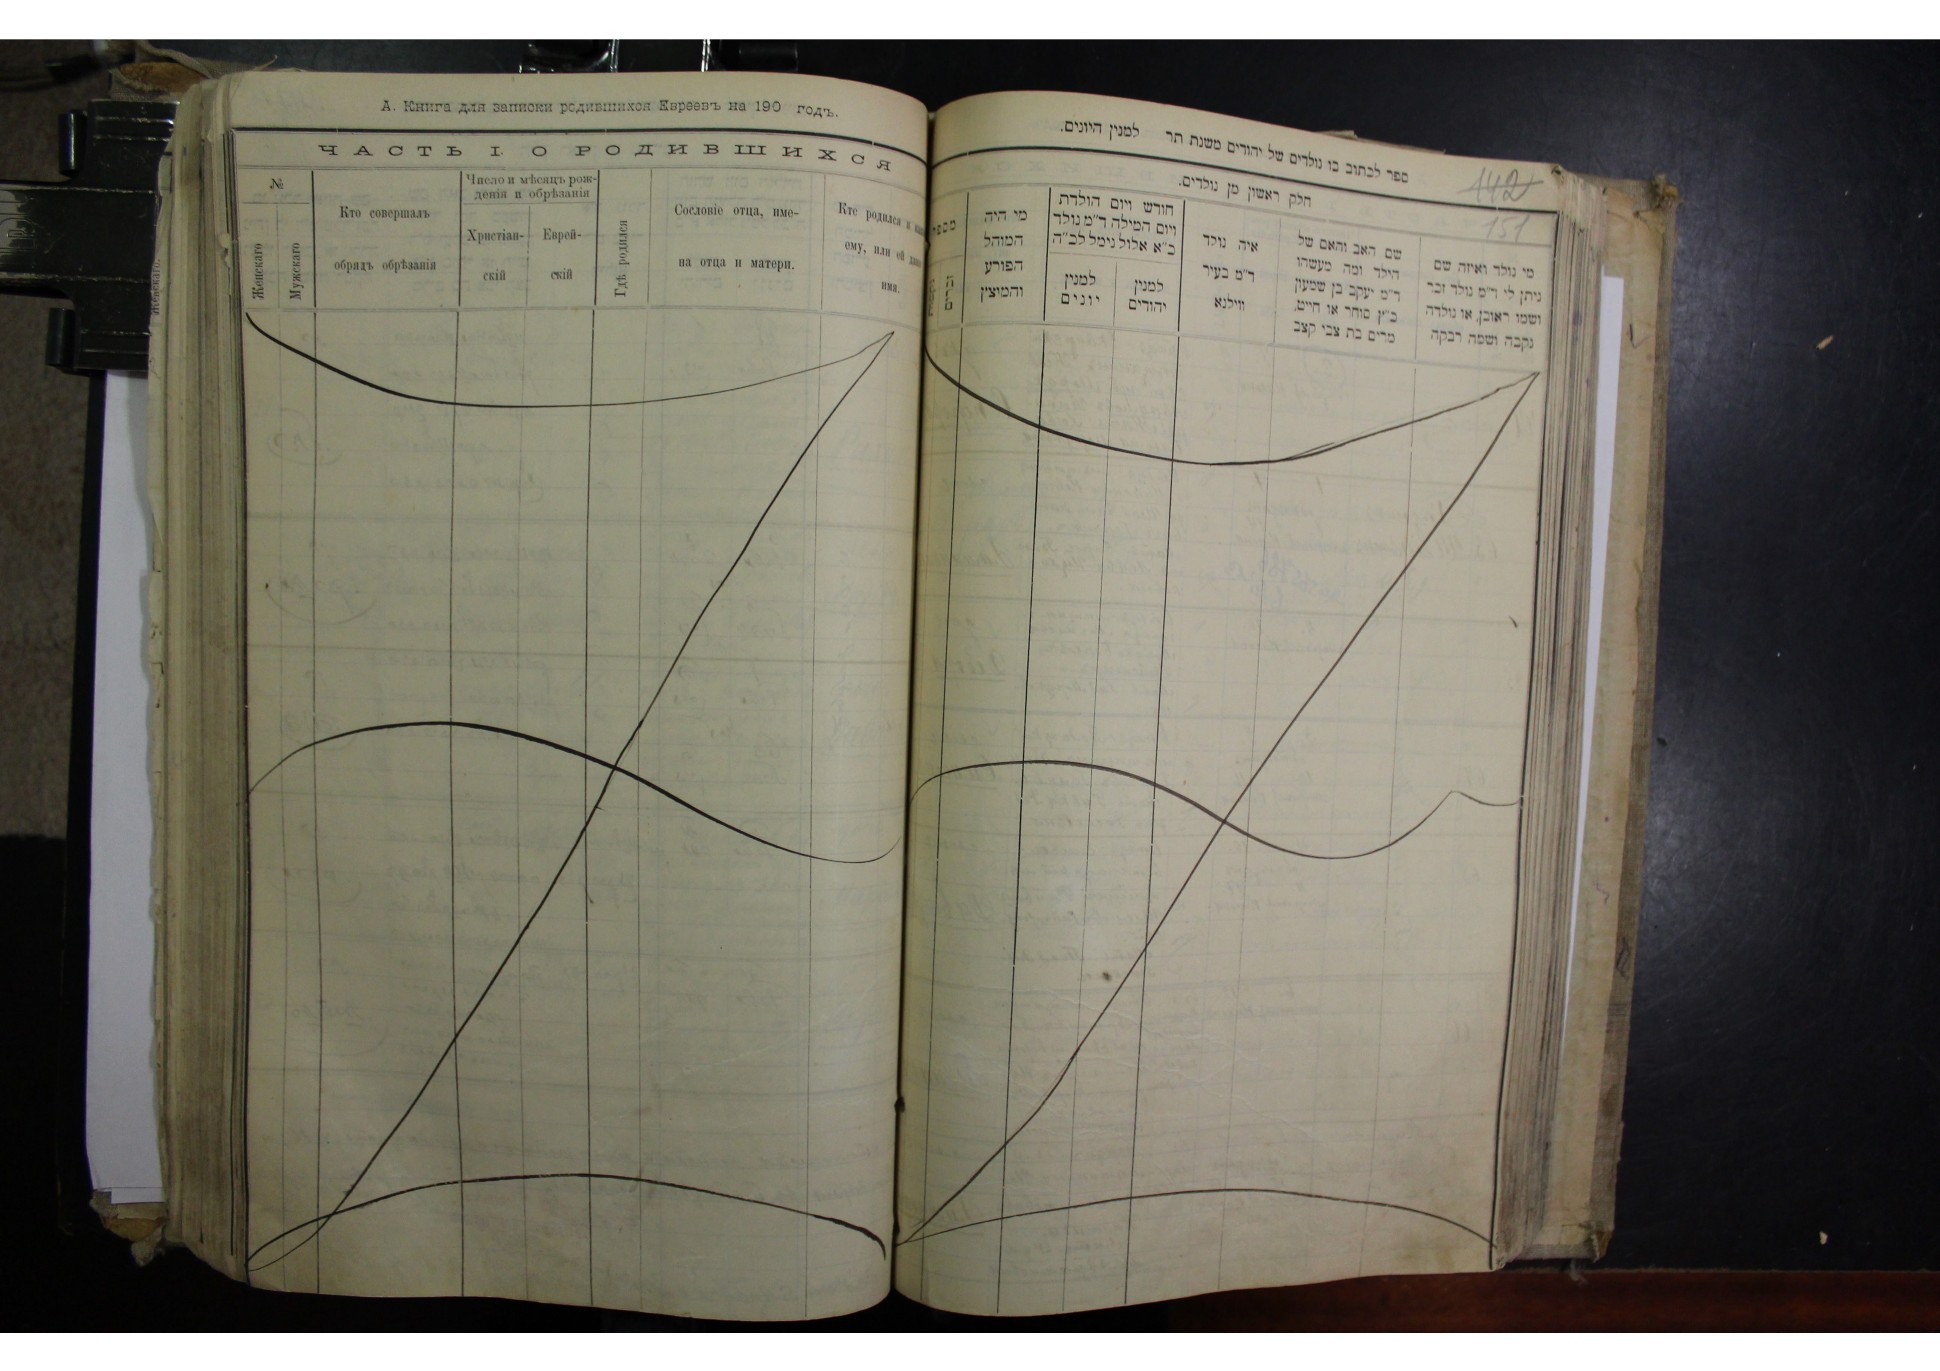 А. Книга для записки родившихся Евреевъ на 190 годъ.
ЧАСТЬ I. О РОДИВШИХСЯ
№
Женскаго
Мужскаго
Кто совершалъ
обрядъ обрѣзанія
Число и мѣсяцъ рож-
денія и обрѣзанія
Христіан-
скій
Еврей-
скій
Гдѣ родился
Сословіе отца, име-
на отца и матери.
Кто родился и
ему, или ей
имя.
ספר לכתוב בו נולדים של יהודים משנת תר למנין היונים.
חלק ראשון מן נולדים.
142
151
מספר
זכרים
מי היה
המוהל
הפורע
והמוצץ
חודש ויום הולדת
ויום המילה ד"מ נולד
כ"א אלול נימל לכ"ה
למנין
יונים
למנין
יהודים
איה נולד
ד"מ בעיר
ווילנא
שם האב והאם של
הילד ומה מעשהו
ד"מ יעקב בן שמעון
כ"ץ סוחר או חייט,
מרים בת צבי קצב
מי נולד ואיזה שם
ניתן לו ד"מ נולד זכר
ושמו ראובן, או נולדה
נקבה ושמה רבקה
Женскаго.